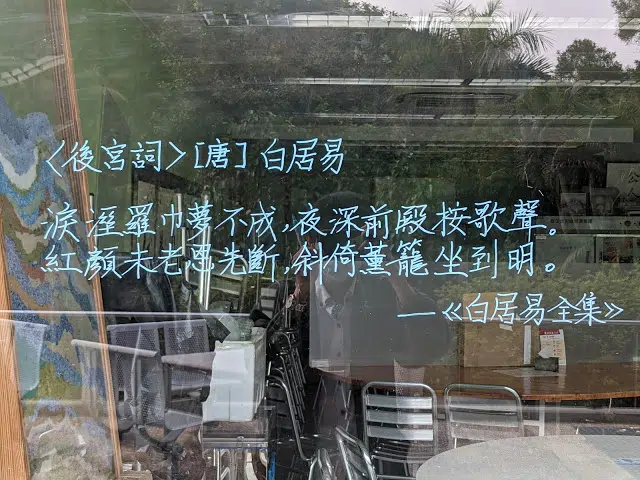 〈後宮詞〉[唐] 白居易
淚溼羅巾夢不成，夜深前殿按歌聲。
紅顏未老恩先斷，斜倚薰籠坐到明。
—《白居易全集》
公